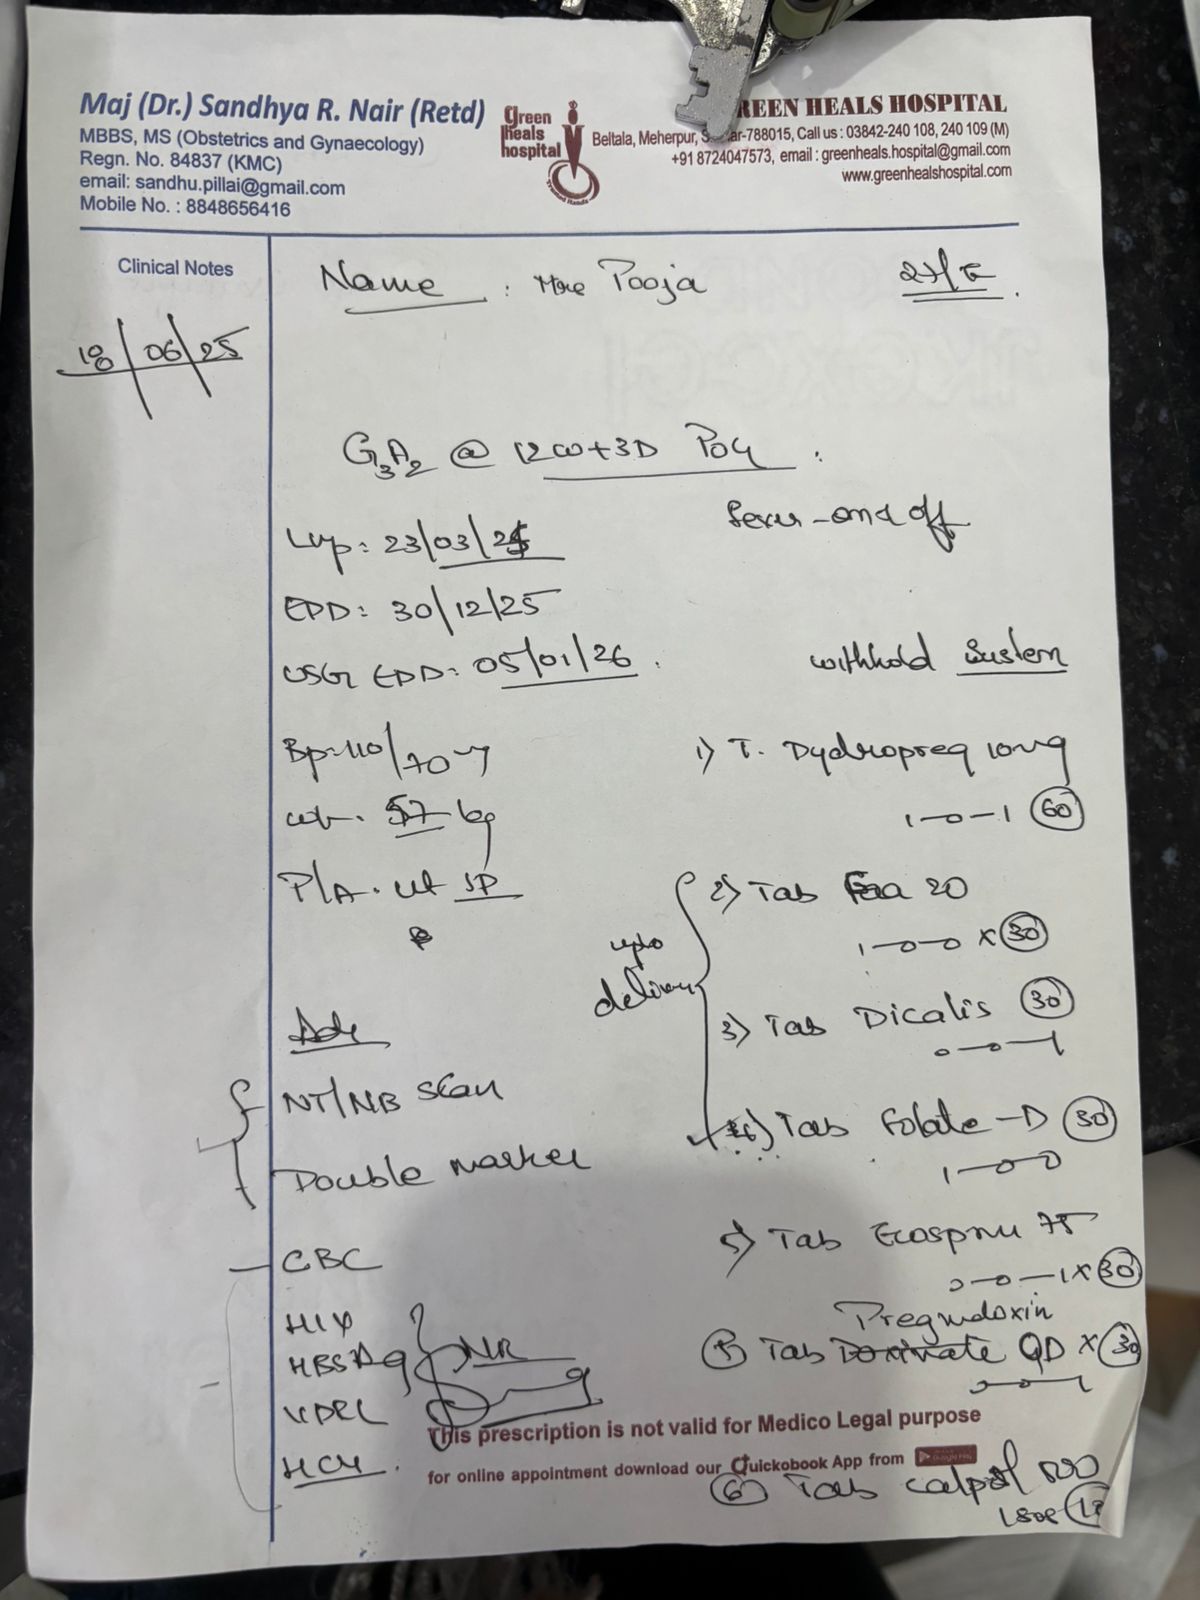 Maj (Dr.) Sandhya R. Nair (Retd)
MBBS, MS (Obstetrics and Gynaecology)
Regn. No. 84837 (KMC)
email: sandhu.pillai@gmail.com
Mobile No. : 8848656416
green
heals
hospital
REEN HEALS HOSPITAL
Beltala, Meherpur, ar-788015, Call us : 03842-240 108, 240 109 (M)
+91 8724047573, email : greenheals.hospital@gmail.com
www.greenhealshospital.com
Clinical Notes
18/06/25
Name : Pooja
G3A2 @ 12w+3D POG
Lmp: 23/03/25
on & off
EDD: 30/12/25
USG EDD: 05/01/26
withhold Susten
Bp-110/70
wt. 57 kg
P/A. ut SP
Adv
NT/NB scan
Double marker
CBC
HIV
HBSAg
VDRL
HCV
NR
1) T. Dydropreg 10mg
1-0-1 (60)
upto
delivery
2) Tab 20
1-0-0 x (30)
3) Tab Dicalis (30)
0-0-1
4) Tab Folate-D (30)
1-0-0
5) Tab Ecosprin 75
0-0-1 x (30)
Pregnidoxin
Tab Doxinate QD x (30)
0-0-1
(6) Tab Calpol 500
1 SOS
This prescription is not valid for Medico Legal purpose
for online appointment download our Quickobook App from